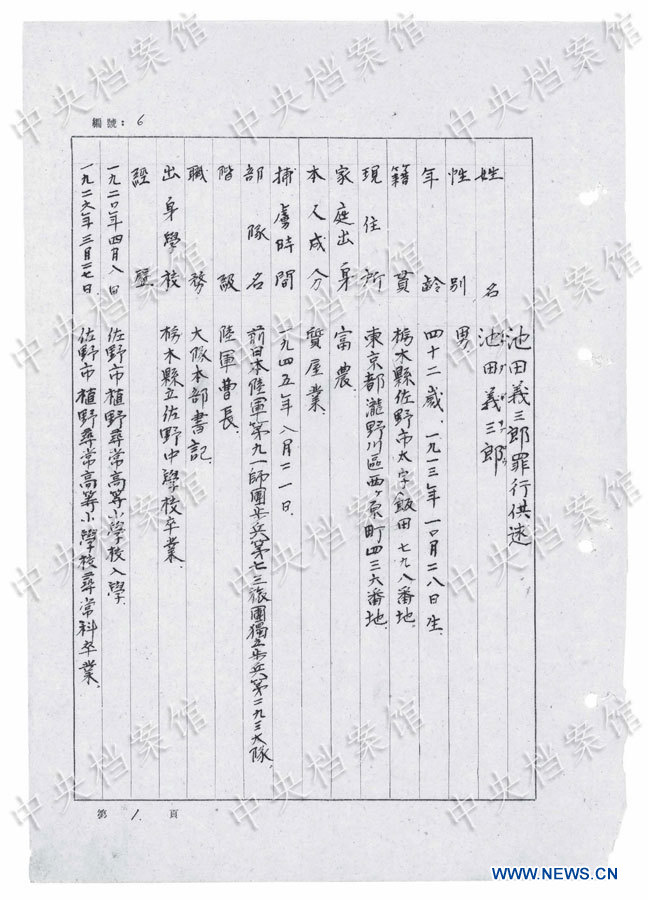 編號：6
池田義三郎罪行供述
姓名 池田義三郎
性別 男.
年齡 四十二歲、一九一三年一〇月二八日生.
籍貫 栃木縣佐野市大字飯田七九八番地.
現住所 東京都瀧野川區西ヶ原町四三六番地.
家庭出身 富農.
本人成分 質屋業
捕虜時間 一九四五年八月二一日.
部隊名 前日本陸軍第九一師團步兵第七三旅團獨立步兵第二九三大隊.
階級 陸軍曹長.
職務 大隊本部書記.
出身學校 栃木縣立佐野中學校卒業.
經歷
一九二〇年四月八日 佐野市植野尋常高等小學校入學.
一九二六年三月二七日. 佐野市植野尋常高等小學校尋常科卒業.
第 1. 頁
中央档案馆
WWW.NEWS.CN